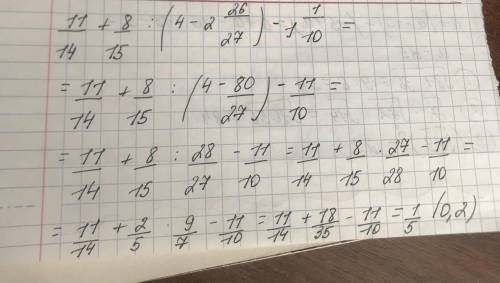 11/14 + 8/15 : (4 - 2 26/27) - 1 1/10 =
= 11/14 + 8/15 : (4 - 80/27) - 11/10 =
= 11/14 + 8/15 : 28/27 - 11/10 = 11/14 + 8/15 · 27/28 - 11/10 =
= 11/14 + 2/5 · 9/7 - 11/10 = 11/14 + 18/35 - 11/10 = 1/5 (0,2)